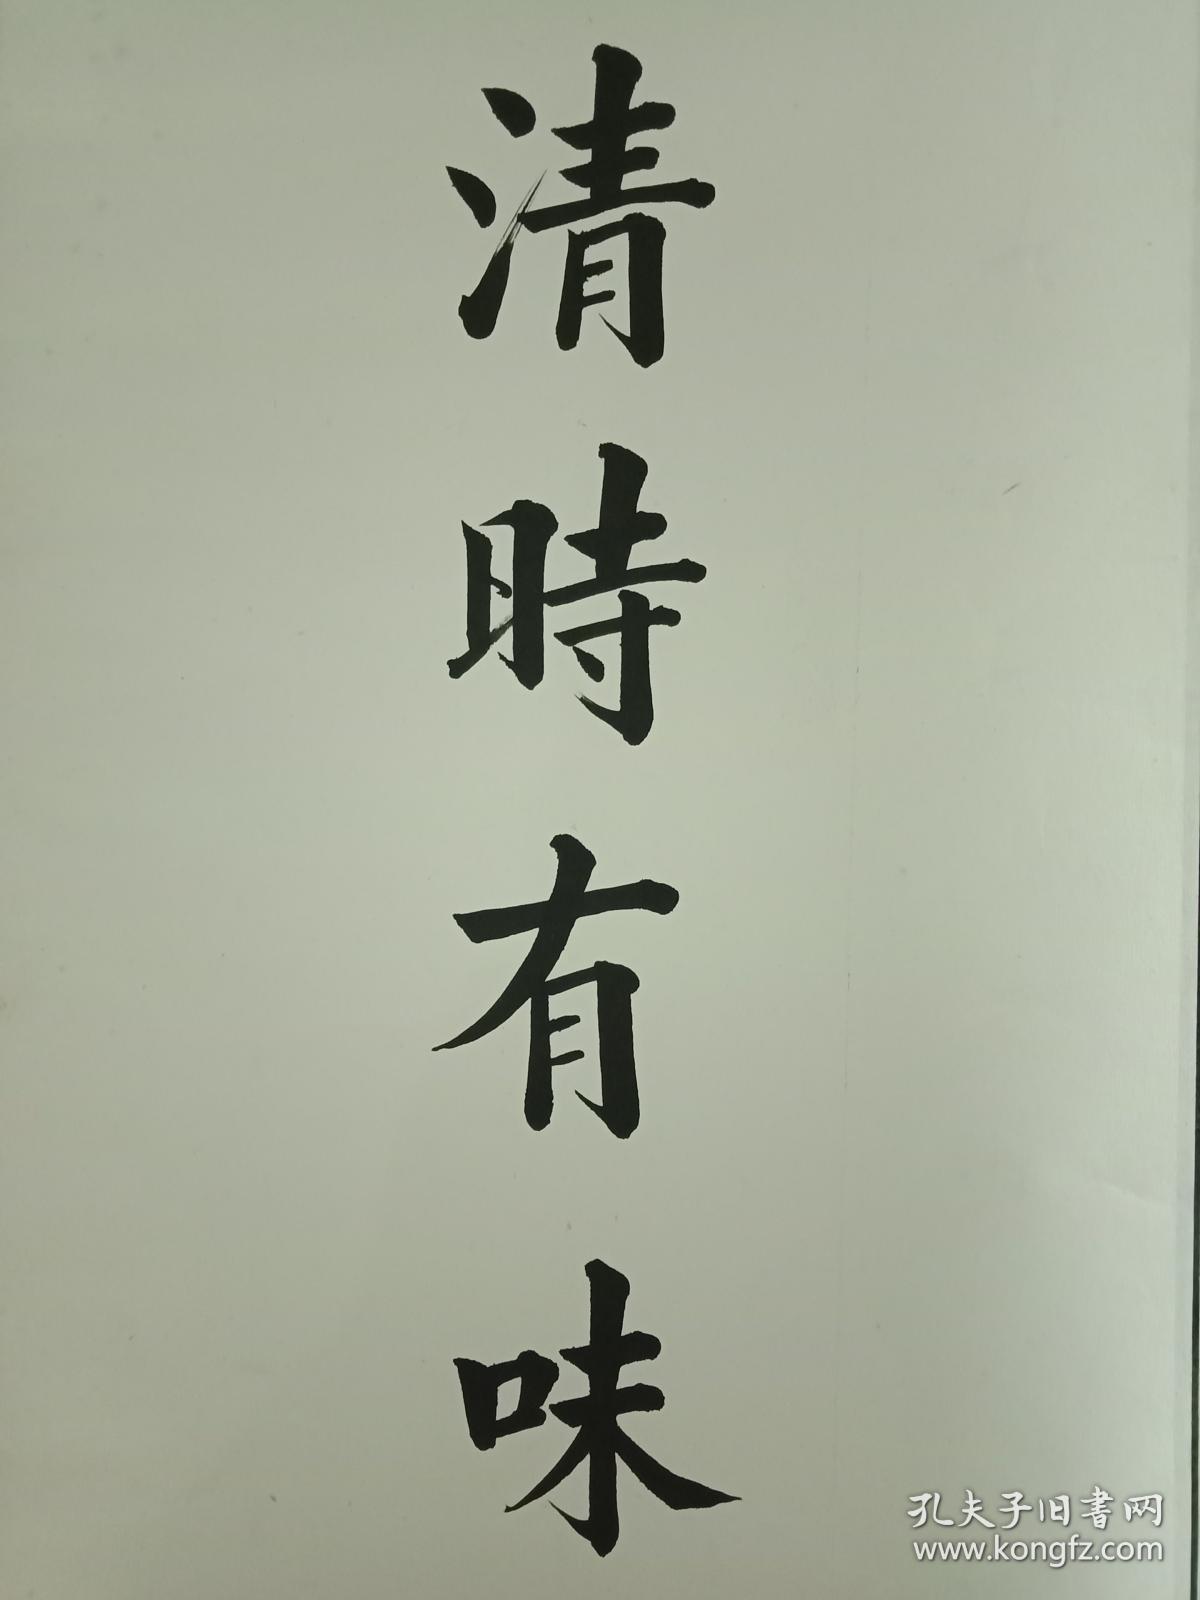 清時有味
孔夫子旧書网
www.kongfz.com